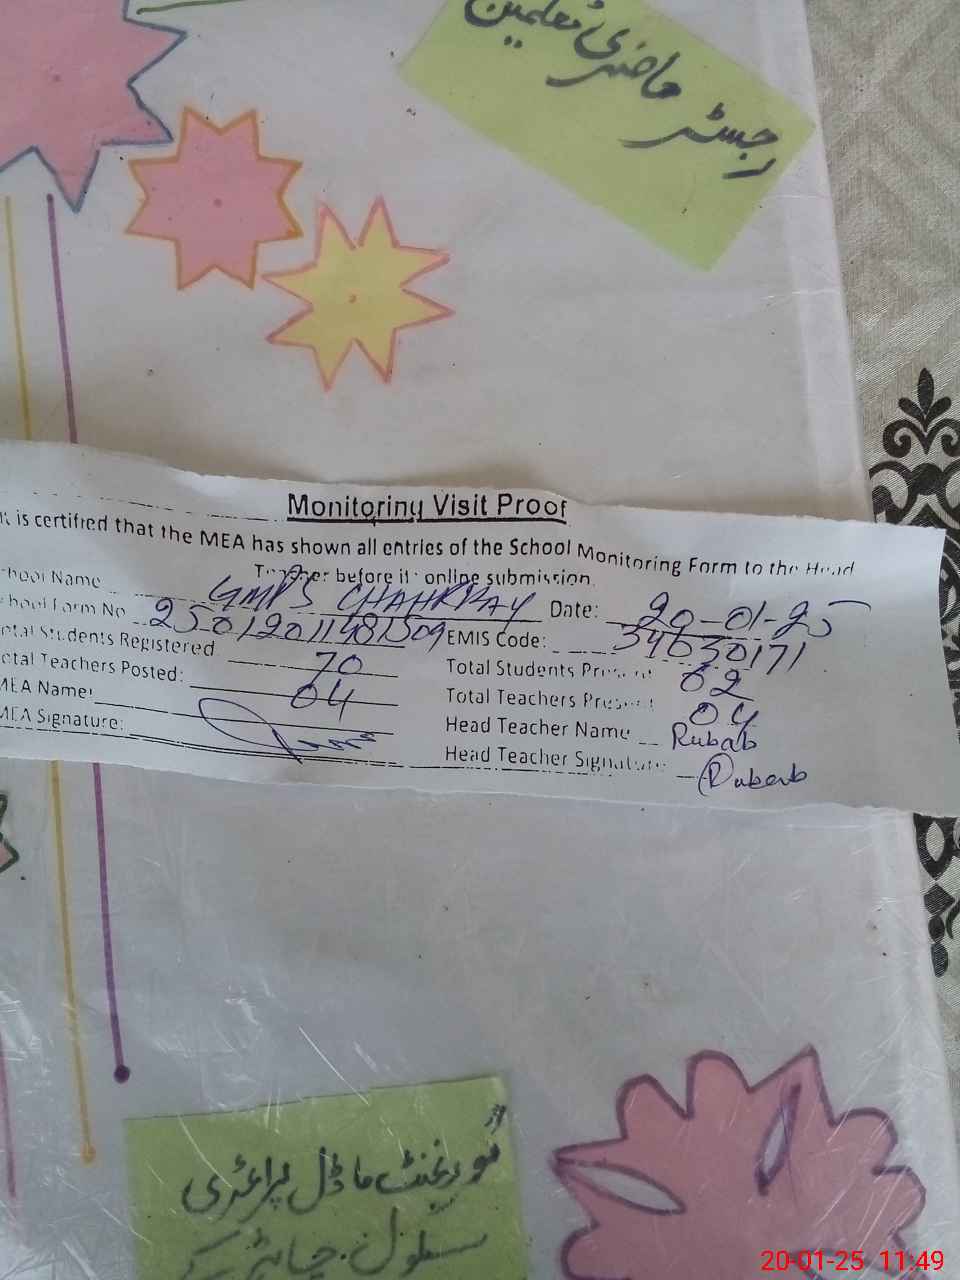 رجسٹر حاضری معلمین
Monitoring Visit Proof
It is certified that the MEA has shown all entries of the School Monitoring Form to the Head
Teacher before its online submission.
School Name GMPS CHAHKKAY Date: 20-01-25
School Form No 250120111481509 EMIS Code: 34630171
Total Students Registered 70 Total Students Present 62
Total Teachers Posted: 04 Total Teachers Present 04
MEA Name: Head Teacher Name Rubab
MEA Signature: Head Teacher Signature Rubab
گورنمنٹ ماڈل پرائمری
سکول
20-01-25 11:49